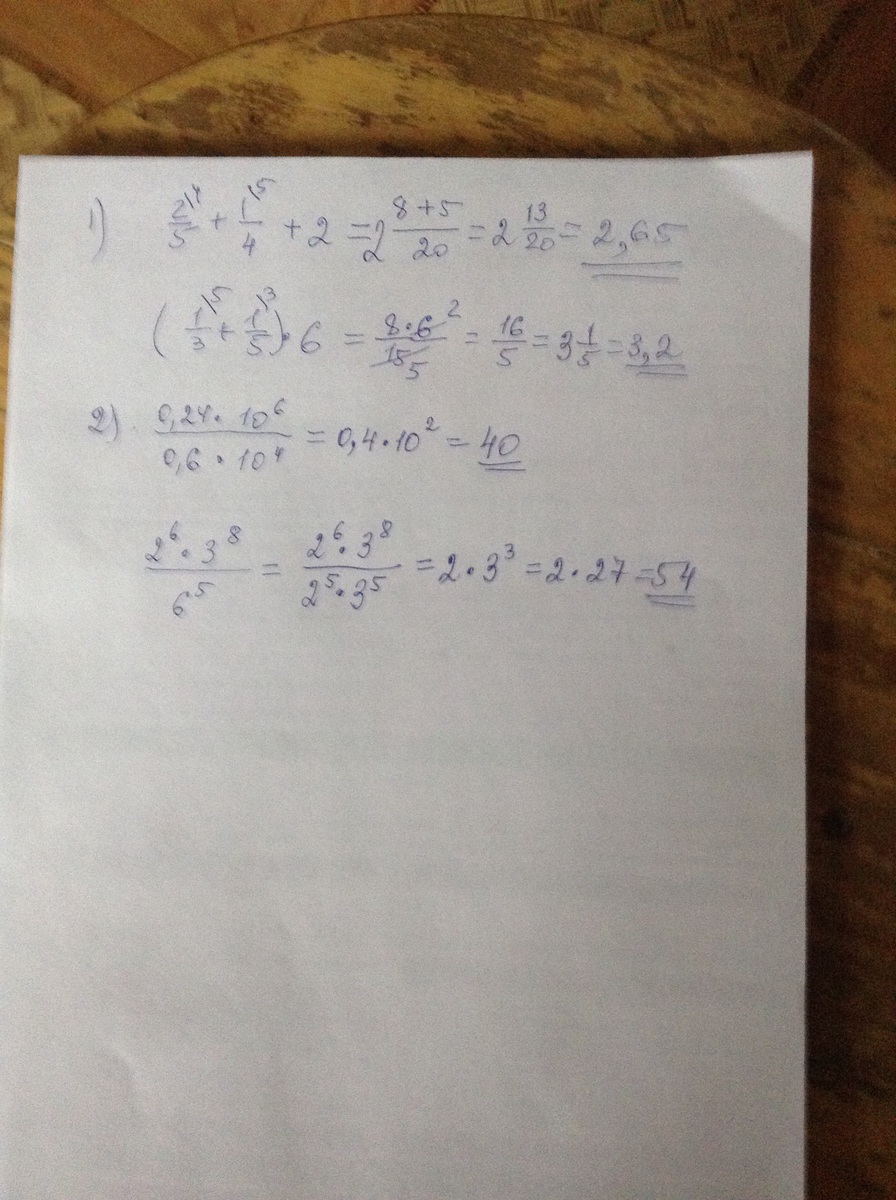 1) 2/5\4 + 1/4\5 + 2 = 2 (8+5)/20 = 2 13/20 = 2,65
(1/3\5 + 1/5\3) · 6 = (8·6 2)/(15 5) = 16/5 = 3 1/5 = 3,2
2) (0,24 · 10⁶)/(0,6 · 10⁴) = 0,4 · 10² = 40
(2⁶ · 3⁸)/6⁵ = (2⁶ · 3⁸)/(2⁵ · 3⁵) = 2 · 3³ = 2 · 27 = 54